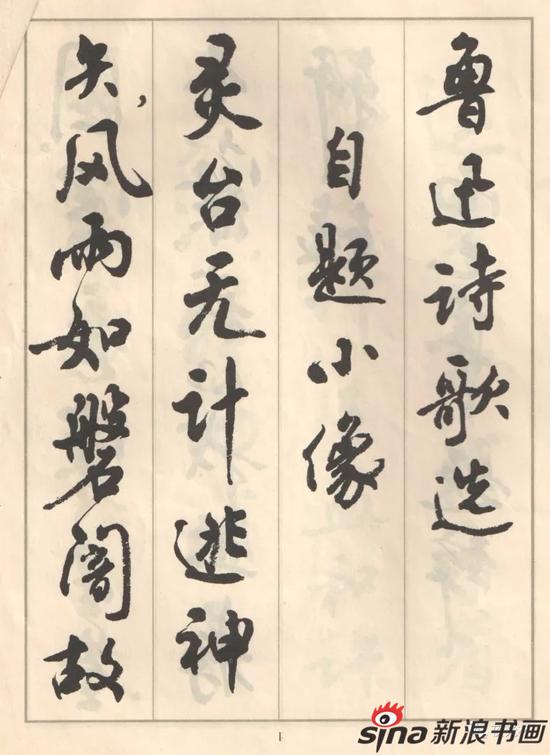 鲁迅诗歌选
自题小像
灵台无计逃神
矢，风雨如磐闇故
1
sina新浪书画